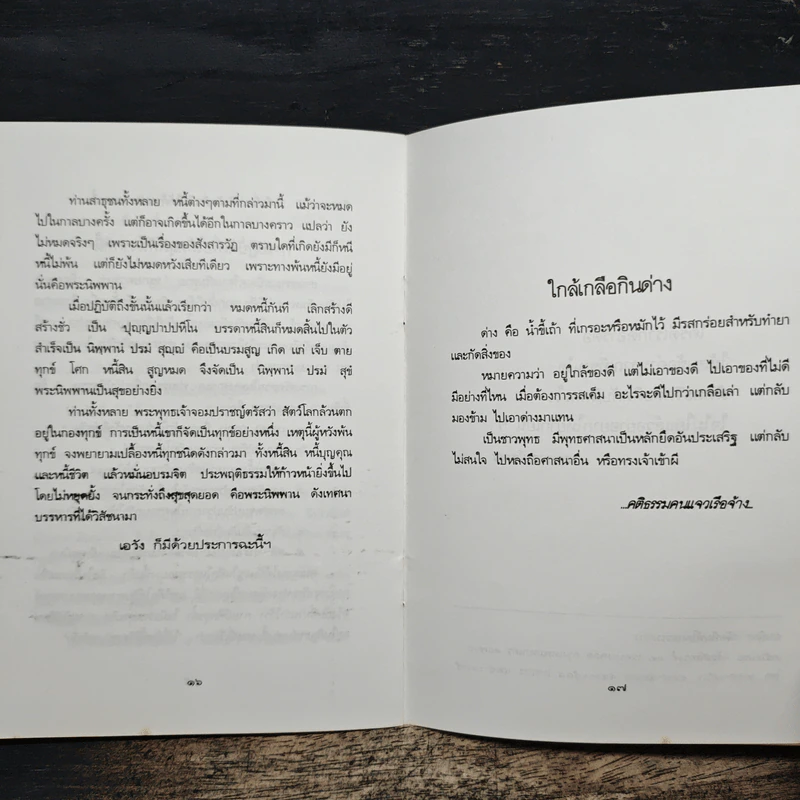 ท่านสาธุชนทั้งหลาย หนี้ต่างๆตามที่กล่าวมานี้ แม้ว่าจะหมด
ไปในกาลบางครั้ง แต่ก็อาจเกิดขึ้นได้อีกในกาลบางคราว แปลว่า ยัง
ไม่หมดจริงๆ เพราะเป็นเรื่องของสังสารวัฏ ตราบใดที่เกิดยังมีก็หนี
หนี้ไม่พ้น แต่ก็ยังไม่หมดหวังเสียทีเดียว เพราะทางพ้นหนี้ยังมีอยู่
นั่นคือพระนิพพาน
เมื่อปฏิบัติถึงขั้นนั้นแล้วเรียกว่า หมดหนี้กันที เลิกสร้างดี
สร้างชั่ว เป็น ปุญฺญปาปปหีโน บรรดาหนี้สินก็หมดสิ้นไปในตัว
สำเร็จเป็น นิพฺพานํ ปรมํ สุญฺญํ คือเป็นบรมสูญ เกิด แก่ เจ็บ ตาย
ทุกข์ โศก หนี้สิน สูญหมด จึงจัดเป็น นิพฺพานํ ปรมํ สุขํ
พระนิพพานเป็นสุขอย่างยิ่ง
ท่านทั้งหลาย พระพุทธเจ้าจอมปราชญ์ตรัสว่า สัตว์โลกล้วนตก
อยู่ในกองทุกข์ การเป็นหนี้เขาก็จัดเป็นทุกข์อย่างหนึ่ง เหตุนี้ผู้หวังพ้น
ทุกข์ จงพยายามเปลื้องหนี้ทุกชนิดดังกล่าวมา ทั้งหนี้สิน หนี้บุญคุณ
และหนี้ชีวิต แล้วหมั่นอบรมจิต ประพฤติธรรมให้ก้าวหน้ายิ่งขึ้นไป
โดยไม่หยุดยั้ง จนกระทั่งถึงสุขสุดยอด คือพระนิพพาน ดังเทศนา
บรรหารที่ได้วิสัชนามา
เอวัง ก็มีด้วยประการฉะนี้ฯ
๑๖
ใกล้เกลือกินด่าง
ด่าง คือ น้ำขี้เถ้า ที่เกรอะหรือหมักไว้ มีรสกร่อยสำหรับทำยา
และกัดสิ่งของ
หมายความว่า อยู่ใกล้ของดี แต่ไม่เอาของดี ไปเอาของที่ไม่ดี
มีอย่างที่ไหน เมื่อต้องการรสเค็ม อะไรจะดีไปกว่าเกลือเล่า แต่กลับ
มองข้าม ไปเอาด่างมาแทน
เป็นชาวพุทธ มีพุทธศาสนาเป็นหลักยึดอันประเสริฐ แต่กลับ
ไม่สนใจ ไปหลงถือศาสนาอื่น หรือทรงเจ้าเข้าผี
...คติธรรมคนแจวเรือจ้าง...
๑๗